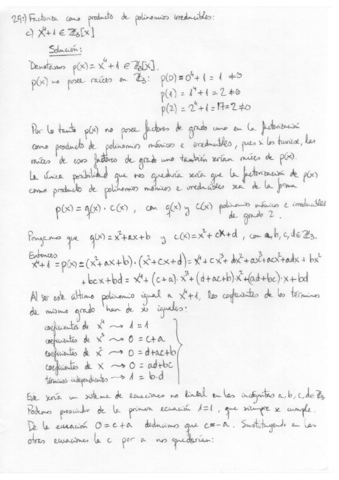 29.) Factoriza como producto de polinomios irreducibles:
c) x⁴+1 ∈ ℤ₃[x]
Solución:
Denotamos p(x) = x⁴+1 ∈ ℤ₃[x].
p(x) no posee raíces en ℤ₃: p(0) = 0⁴+1 = 1 ≠0
p(1) = 1⁴+1 = 2 ≠0
p(2) = 2⁴+1 = 17 = 2 ≠0
Por lo tanto p(x) no posee factores de grado uno en la factorización
como producto de polinomios mónicos e irreducibles, pues si los tuviese, las
raíces de esos factores de grado uno también serían raíces de p(x).
La única posibilidad que nos quedaría sería que la factorización de p(x)
como producto de polinomios mónicos e irreducibles sea de la forma
p(x) = q(x) · c(x), con q(x) y c(x) polinomios mónicos e irreducibles
de grado 2.
Pongamos que q(x) = x²+ax+b y c(x) = x²+cx+d, con a, b, c, d ∈ ℤ₃.
Entonces
x⁴+1 = p(x) = (x²+ax+b)·(x²+cx+d) = x⁴+cx³+dx²+ax³+acx²+adx+bx²
+bcx+bd = x⁴+(c+a)·x³+(d+ac+b)·x²+(ad+bc)·x+bd
Al ser este último polinomio igual a x⁴+1, los coeficientes de los términos
de mismo grado han de ser iguales:
coeficientes de x⁴ ⟿ 1=1
coeficientes de x³ ⟿ 0=c+a
coeficientes de x² ⟿ 0=d+ac+b
coeficientes de x ⟿ 0=ad+bc
términos independientes ⟿ 1=b·d
Este sería un sistema de ecuaciones no lineal en las incógnitas a, b, c, d ∈ ℤ₃
Podemos prescindir de la primera ecuación 1=1, que siempre se cumple.
De la ecuación 0=c+a deducimos que c=-a. Sustituyendo en las
otras ecuaciones la c por a nos quedarían: